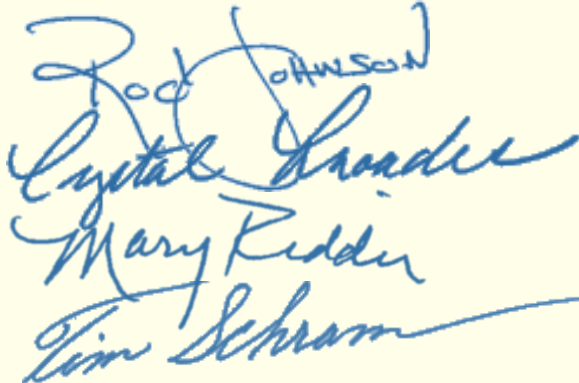 Rod Johnson
Crystal Rhoades
Mary Ridder
Tim Schram